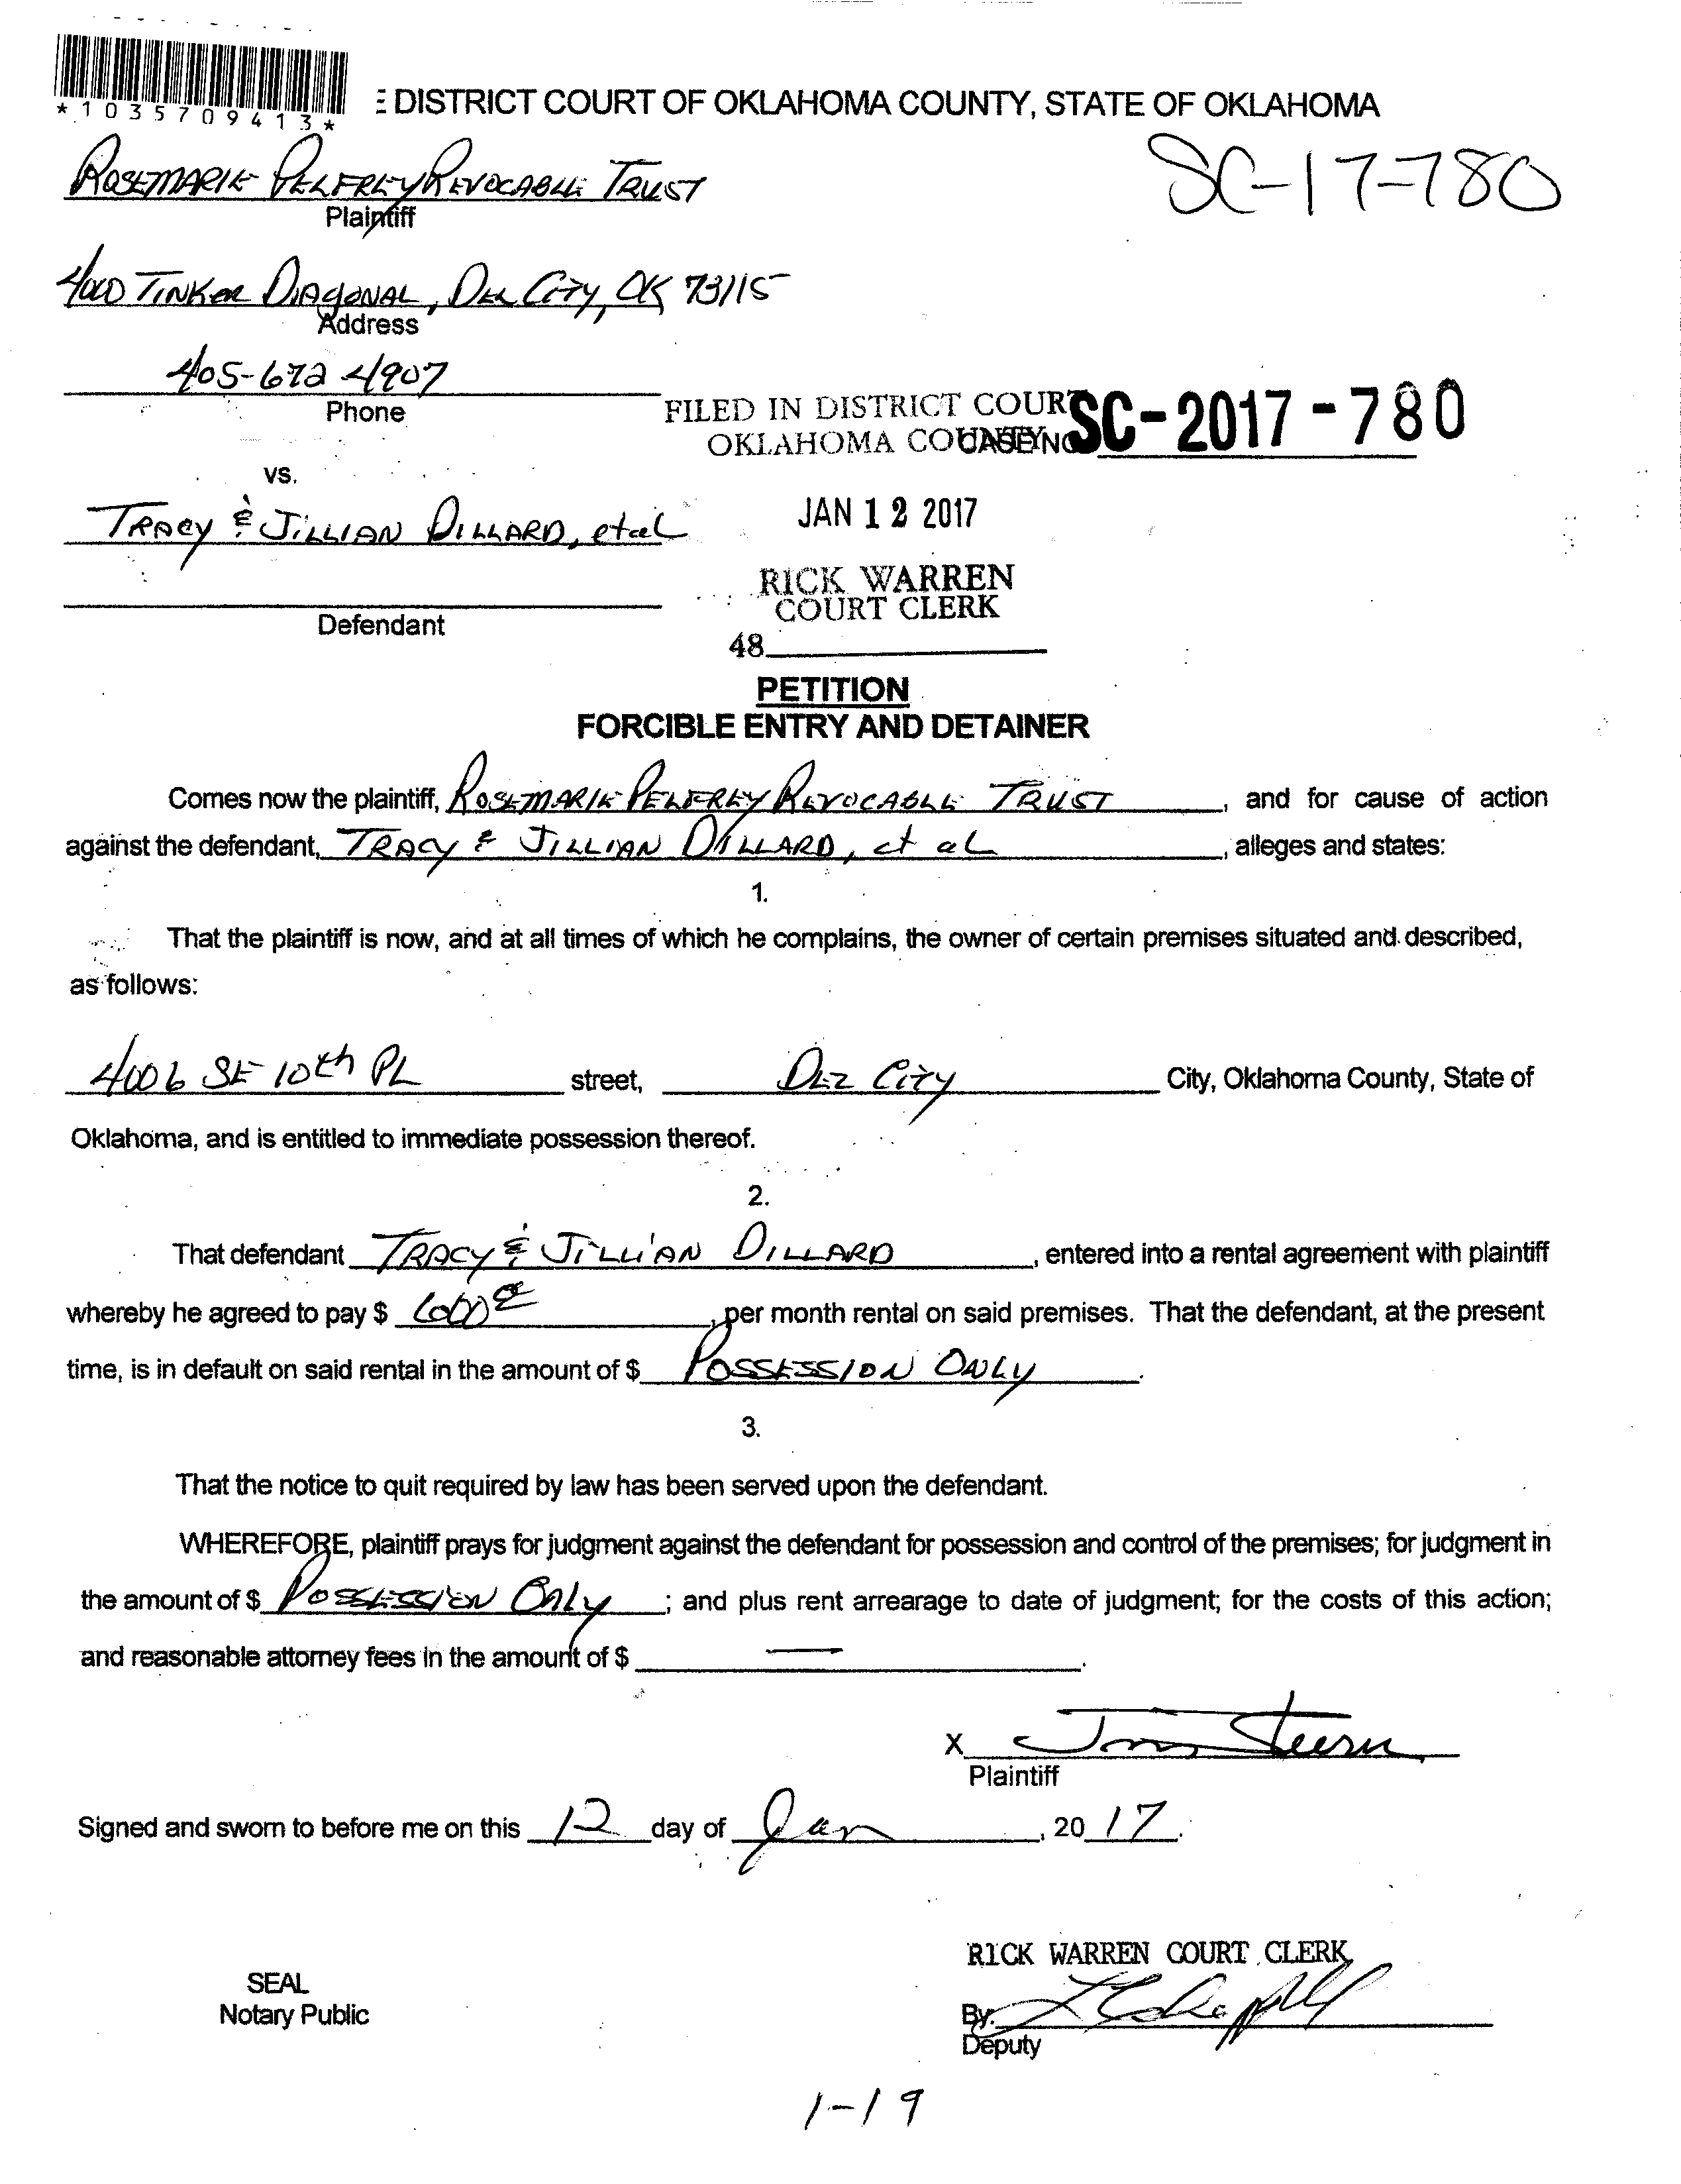 *1035709413*
DISTRICT COURT OF OKLAHOMA COUNTY, STATE OF OKLAHOMA
ROSEMARIE PELFREY REVOCABLE TRUST
SC-17-780
Plaintiff
4000 TINKER DIAGONAL, DEL CITY, OK 73115
Address
405-672 4907
Phone
FILED IN DISTRICT COURT
OKLAHOMA COUNTY
CASE NO
SC-2017-780
vs.
JAN 12 2017
TRACY & JILLIAN DILLARD, et al
RICK WARREN
COURT CLERK
Defendant
48
PETITION
FORCIBLE ENTRY AND DETAINER
Comes now the plaintiff, ROSEMARIE PELFREY REVOCABLE TRUST, and for cause of action
against the defendant, TRACY & JILLIAN DILLARD, et al, alleges and states:
1.
That the plaintiff is now, and at all times of which he complains, the owner of certain premises situated and described,
as follows:
4006 SE 10th PL street, DEL CITY City, Oklahoma County, State of
Oklahoma, and is entitled to immediate possession thereof.
2.
That defendant TRACY & JILLIAN DILLARD, entered into a rental agreement with plaintiff
whereby he agreed to pay $ , per month rental on said premises. That the defendant, at the present
time, is in default on said rental in the amount of $ POSSESSION ONLY.
3.
That the notice to quit required by law has been served upon the defendant.
WHEREFORE, plaintiff prays for judgment against the defendant for possession and control of the premises; for judgment in
the amount of $ POSSESSION ONLY; and plus rent arrearage to date of judgment; for the costs of this action;
and reasonable attorney fees in the amount of $ —.
X
Plaintiff
Signed and sworn to before me on this 12 day of Jan, 20 17.
RICK WARREN COURT CLERK
SEAL
Notary Public
By:
Deputy
1-19